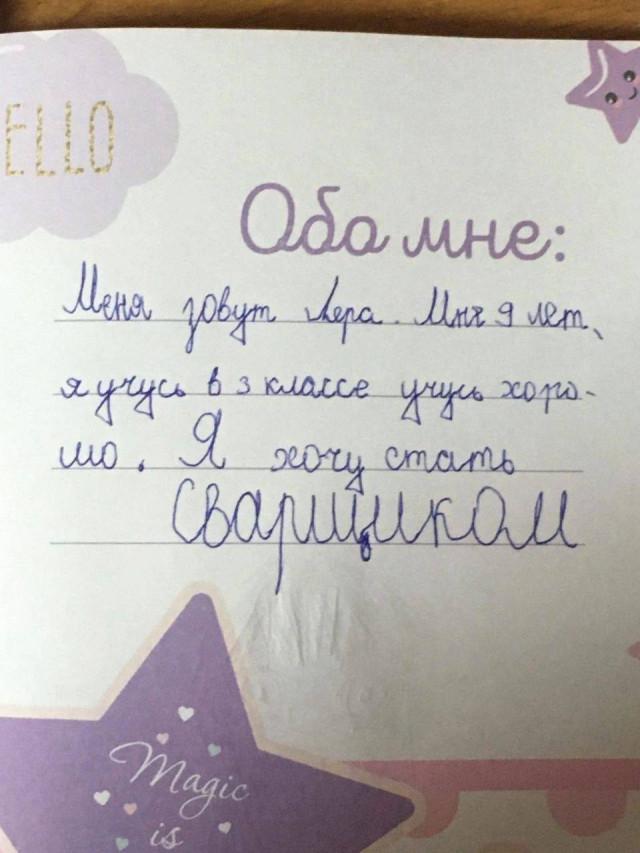 ELLO
Обо мне:
Меня зовут Лера. Мне 9 лет,
я учусь в 3 классе учусь хоро-
шо. Я хочу стать
сварщиком
Magic
is